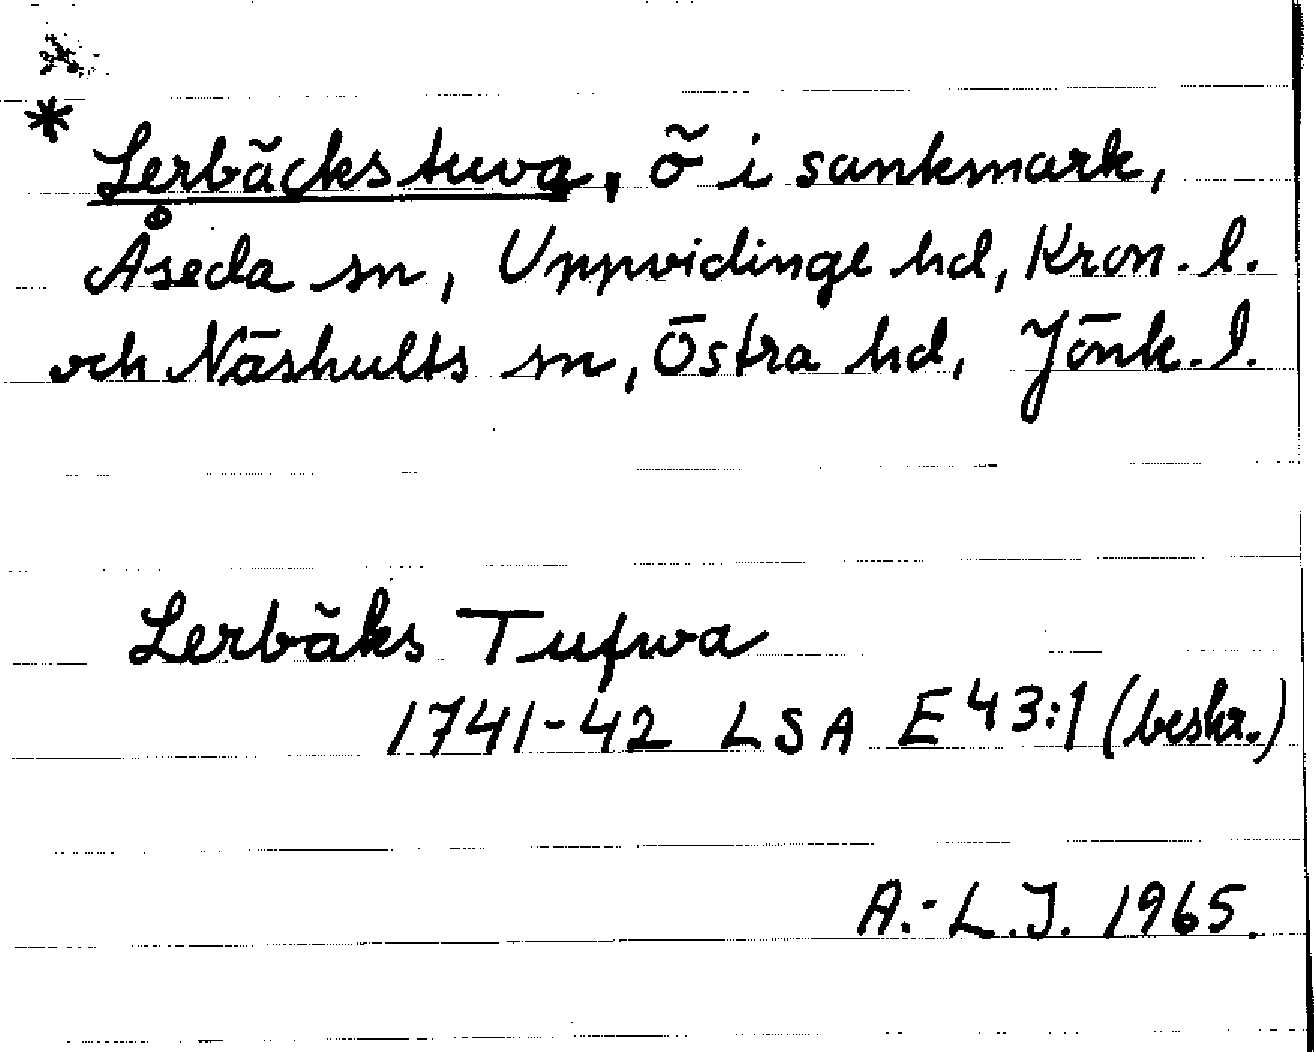 *
Lerbäckstuva, ö i sankmark,
Åseda sn, Uppvidinge hd, Kron. l.
och Näshults sn, Östra hd, Jönk. l.
Lerbäks Tufwa
1741-42 LSA E 43:1 (beskr.)
A.-L.J. 1965.